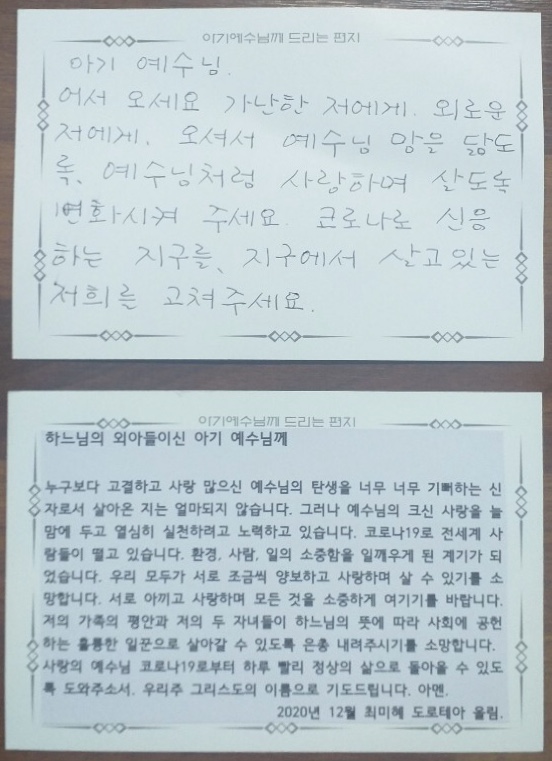 아기예수님께 드리는 편지
아기 예수님.
어서 오세요 가난한 저에게. 외로운
저에게. 오셔서 예수님 맘을 닮도
록, 예수님처럼 사랑하며 살도록
변화시켜 주세요. 코로나로 신음
하는 지구를, 지구에서 살고있는
저희를 고쳐주세요.
아기예수님께 드리는 편지
하느님의 외아들이신 아기 예수님께
누구보다 고결하고 사랑 많으신 예수님의 탄생을 너무 너무 기뻐하는 신
자로서 살아온 지는 얼마되지 않습니다. 그러나 예수님의 크신 사랑을 늘
맘에 두고 열심히 실천하려고 노력하고 있습니다. 코로나19로 전세계 사
람들이 떨고 있습니다. 환경, 사람, 일의 소중함을 일깨우게 된 계기가 되
었습니다. 우리 모두가 서로 조금씩 양보하고 사랑하며 살 수 있기를 소
망합니다. 서로 아끼고 사랑하며 모든 것을 소중하게 여기기를 바랍니다.
저의 가족의 평안과 저의 두 자녀들이 하느님의 뜻에 따라 사회에 공헌
하는 훌륭한 일꾼으로 살아갈 수 있도록 은총 내려주시기를 소망합니다.
사랑의 예수님 코로나19로부터 하루 빨리 정상의 삶으로 돌아올 수 있도
록 도와주소서. 우리주 그리스도의 이름으로 기도드립니다. 아멘.
2020년 12월 최미혜 도로테아 올림.